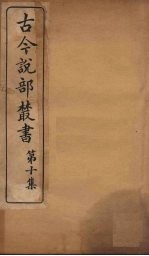 古今說部叢書
第十集